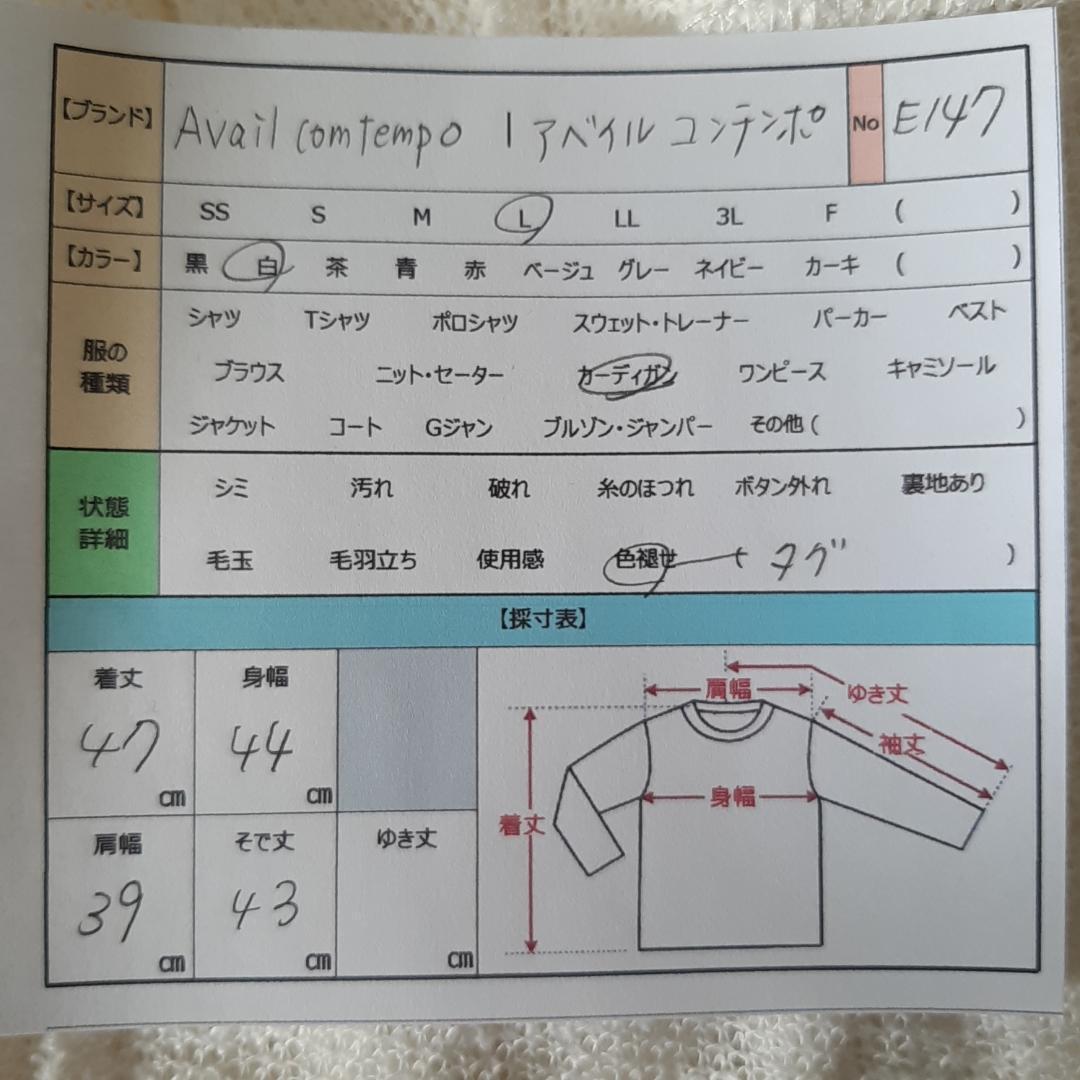 【ブランド】 Avail comtempo | アベイル コンテンポ No E147
【サイズ】 SS S M L LL 3L F ( )
【カラー】 黒 白 茶 青 赤 ベージュ グレー ネイビー カーキ ( )
服の種類
シャツ Tシャツ ポロシャツ スウェット・トレーナー パーカー ベスト
ブラウス ニット・セーター カーディガン ワンピース キャミソール
ジャケット コート Gジャン ブルゾン・ジャンパー その他 ( )
状態詳細
シミ 汚れ 破れ 糸のほつれ ボタン外れ 裏地あり
毛玉 毛羽立ち 使用感 色褪せ タグ )
【採寸表】
着丈 身幅
47 cm 44 cm
肩幅 そで丈 ゆき丈
39 cm 43 cm cm
肩幅
ゆき丈
袖丈
身幅
着丈